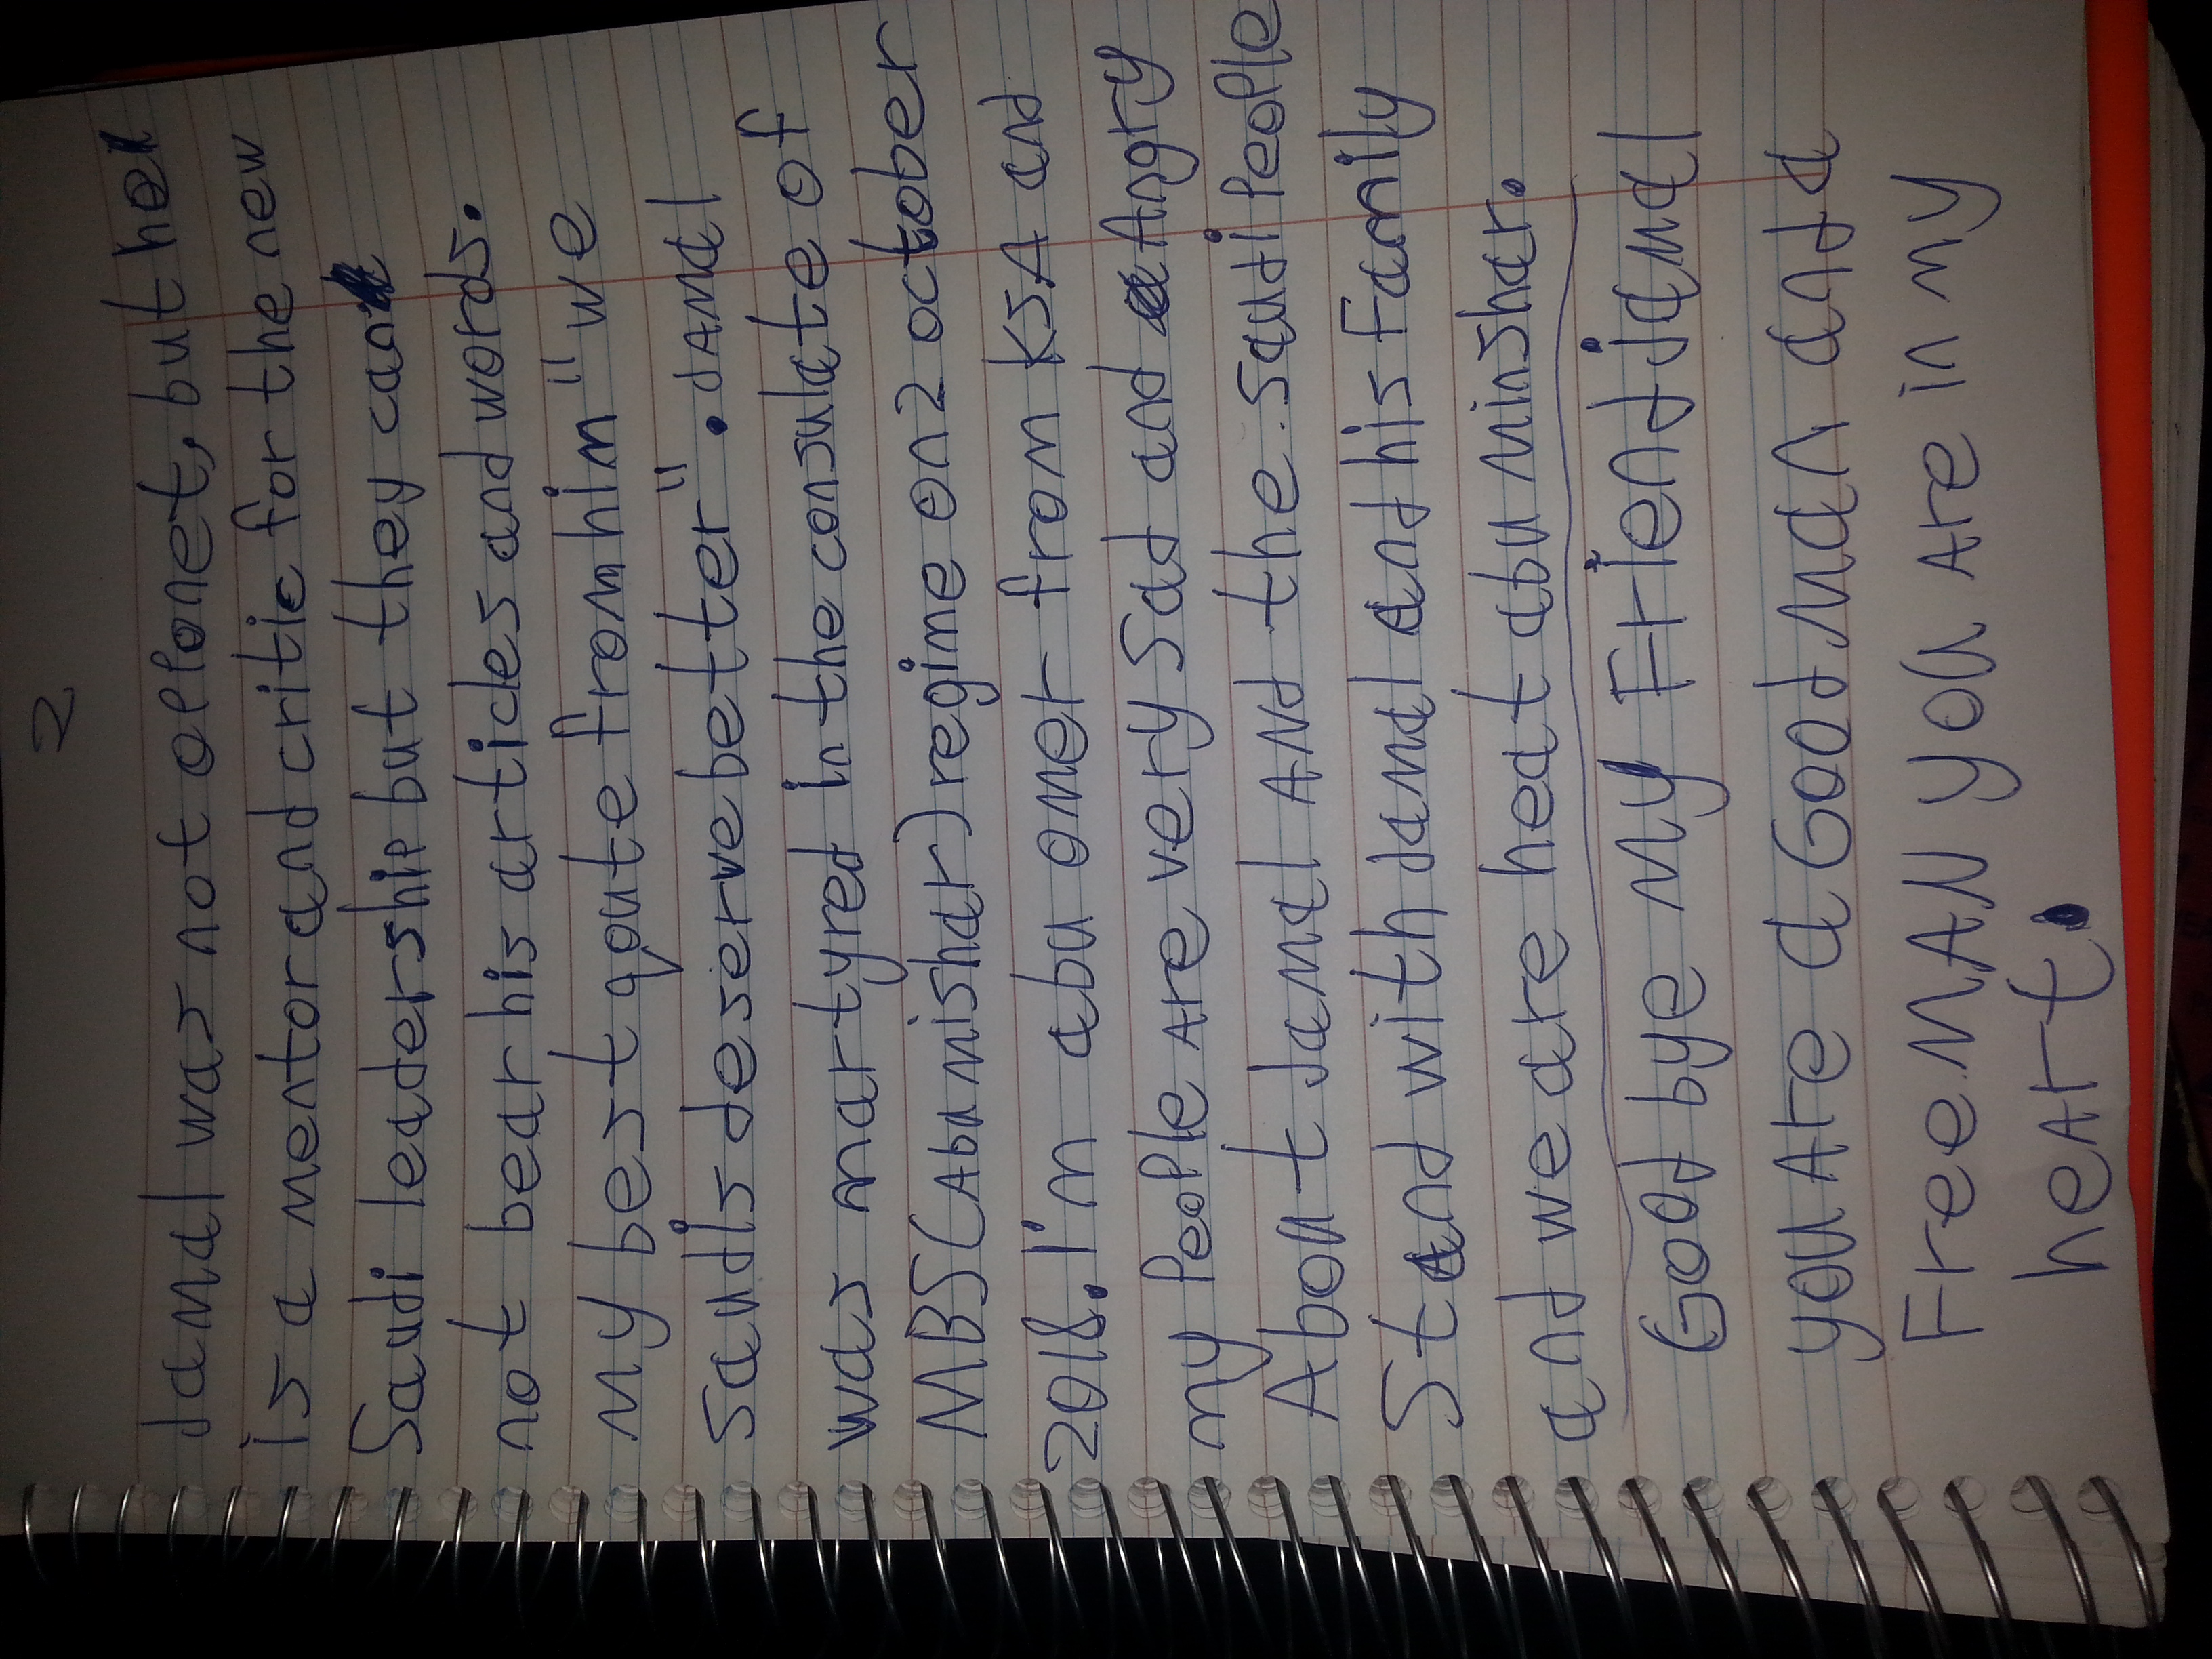 2
Jamal was not opponet, but he
is a mentor and critic for the new
Saudi leadership but they can
not bear his articles and words.
my best qoute from him "we
saudis deserve better". JAMAl
was martyred in the consulate of
MBS (Abu mishar) regime on 2 october
2018. I'm abu omer from KSA and
my People Are very sad and Angry
About Jamal ANd the saudi People
Stand with Jamal and his Family
and we are heat abu minshar.
Good bye My Friend jamal
you Are a Good Man and a
Free MAN you Are in my
heArt.